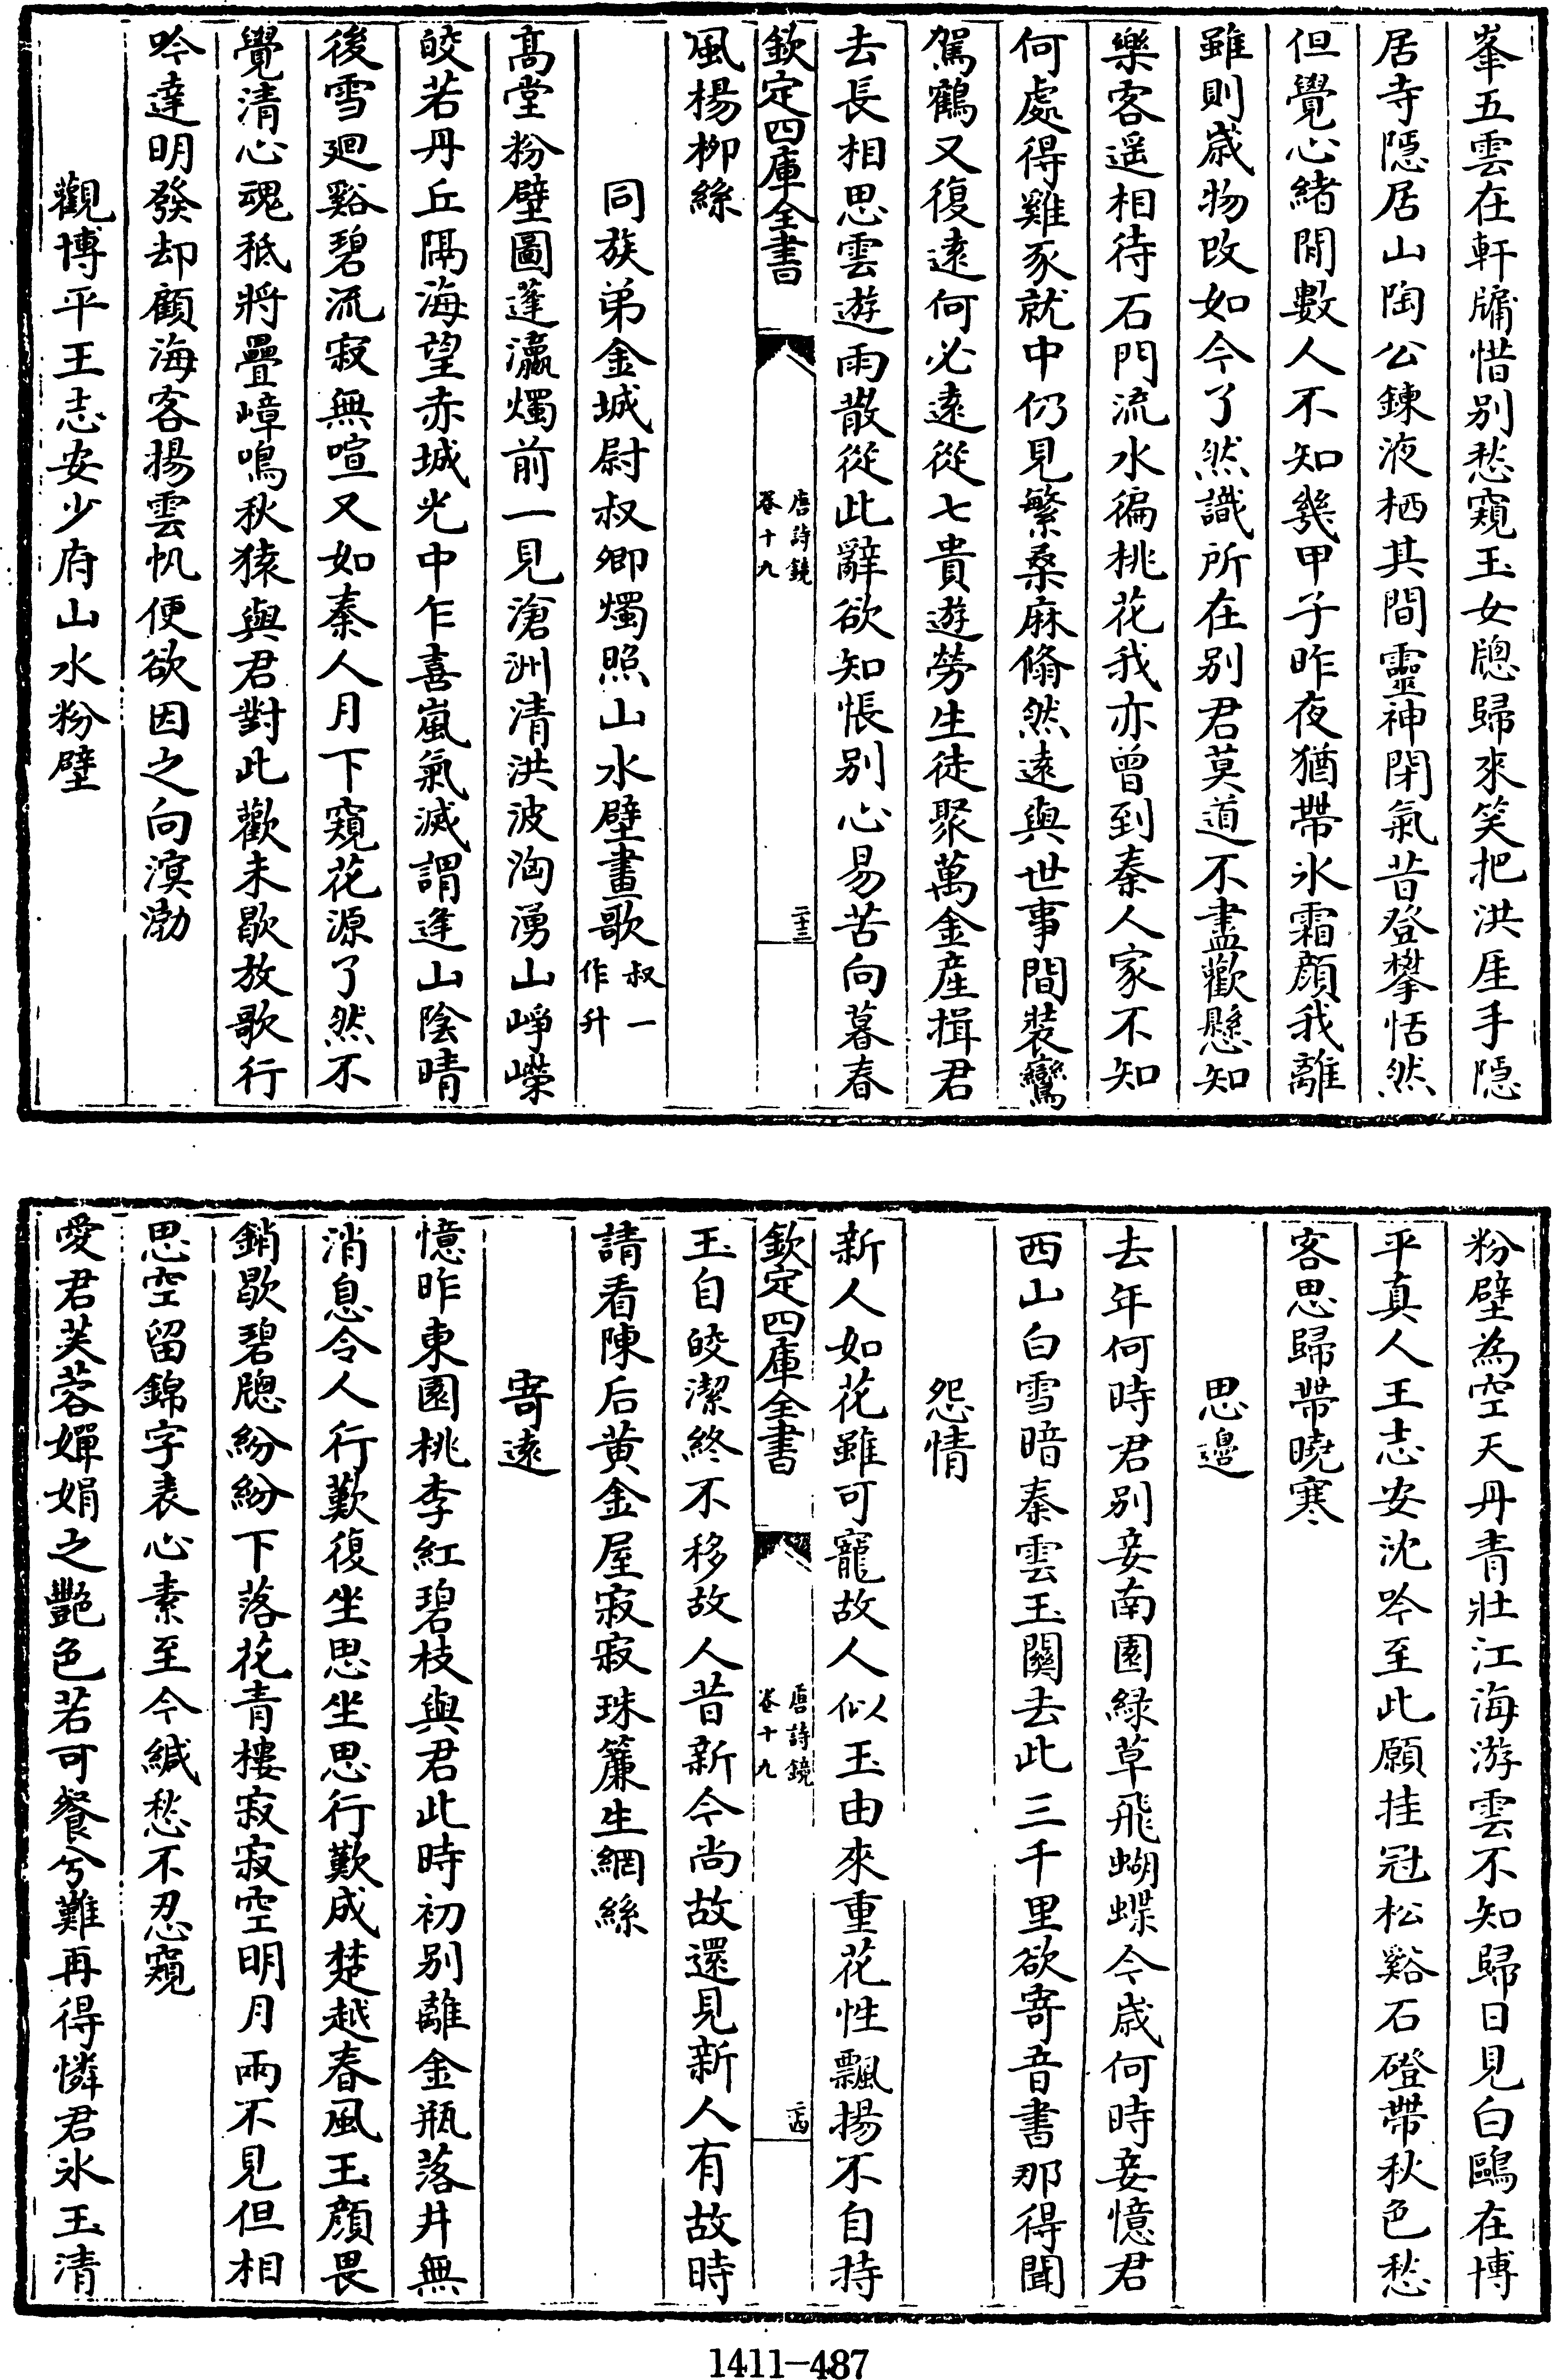 峯五雲在軒牗惜别愁窺玉女牎歸來笑把洪厓手隠
居寺隠居山陶公鍊液栖其間靈神閉氣昔登攀恬然
但覺心緒閒數人不知幾甲子昨夜猶帶氷霜顔我離
雖則歲物改如今了然識所在别君莫道不盡歡懸知
樂客遥相待石門流水徧桃花我亦曾到秦人家不知
何處得雞豕就中仍見繁桑麻翛然遠與世事間裝鸞
駕鶴又復遠何必遠從七貴遊勞生徒聚萬金産揖君
去長相思雲遊雨散從此辭欲知悵别心易苦向暮春
欽定四庫全書 唐詩鏡 卷十九 二十三
風楊柳絲
同族弟金城尉叔卿燭照山水壁畫歌 叔一作升
髙堂粉壁圖蓬瀛燭前一見滄洲清洪波洶湧山崢嶸
皎若丹丘隔海望赤城光中乍喜嵐氣滅謂逢山陰晴
後雪廻谿碧流寂無喧又如秦人月下窺花源了然不
覺清心魂秪將疊嶂鳴秋猿與君對此歡未歇放歌行
吟達明發却顧海客揚雲帆便欲因之向溟渤
觀博平王志安少府山水粉壁
粉壁為空天丹青壯江海游雲不知歸日見白鷗在博
平真人王志安沈吟至此願挂冠松谿石磴帶秋色愁
客思歸帶曉寒
思邉
去年何時君别妾南園緑草飛蝴蝶今歲何時妾憶君
西山白雪暗秦雲玉關去此三千里欲寄音書那得聞
怨情
新人如花雖可寵故人似玉由來重花性飄揚不自持
欽定四庫全書 唐詩鏡 卷十九 二十四
玉自皎潔終不移故人昔新今尚故還見新人有故時
請看陳后黄金屋寂寂珠簾生網絲
寄遠
憶昨東園桃李紅碧枝與君此時初别離金瓶落井無
消息令人行歎復坐思坐思行歎成楚越春風玉顔畏
銷歇碧牎紛紛下落花青樓寂寂空明月兩不見但相
思空留錦字表心素至今緘愁不忍窺
愛君芙蓉嬋娟之艷色若可餐兮難再得憐君氷玉清
1411-487